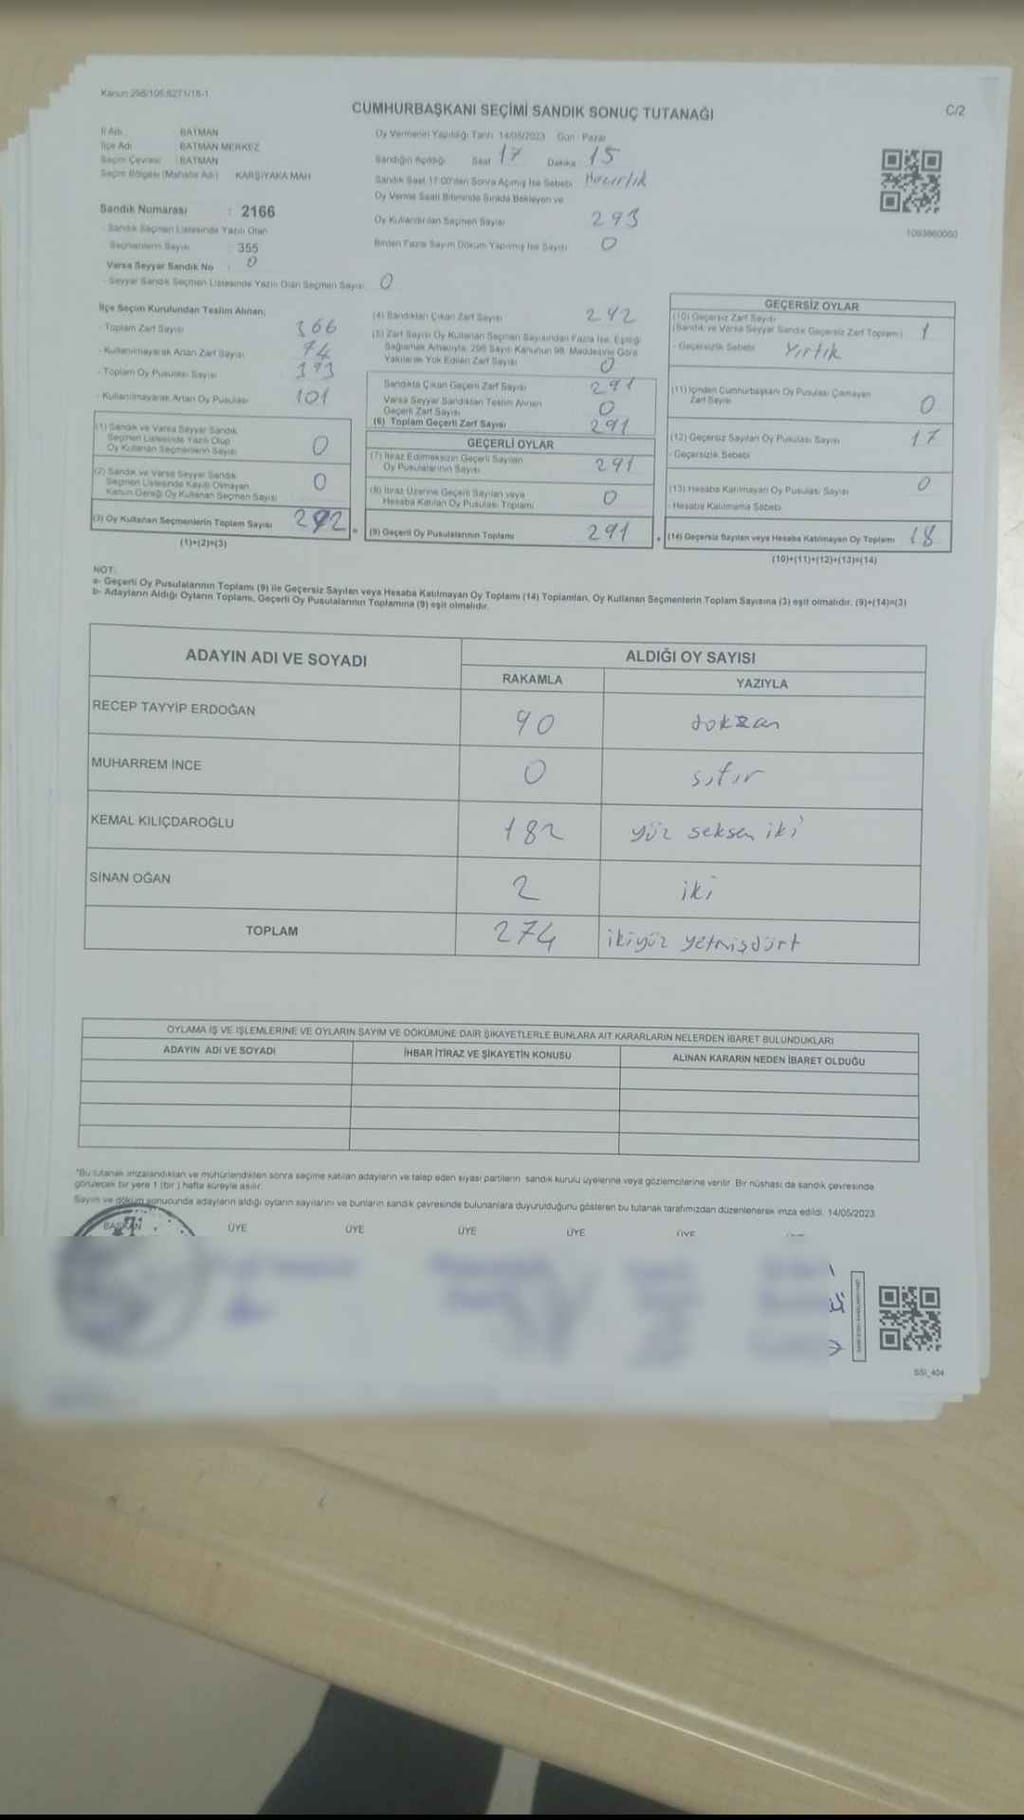 Kanun:298/105;6271/18-1
CUMHURBAŞKANI SEÇİMİ SANDIK SONUÇ TUTANAĞI
C/2
İl Adı BATMAN
İlçe Adı BATMAN MERKEZ
Seçim Çevresi : BATMAN
Seçim Bölgesi (Mahalle Adı) KARŞIYAKA MAH
Sandık Numarası : 2166
Sandık Seçmen Listesinde Yazılı Olan
Seçmenlerin Sayısı : 355
Varsa Seyyar Sandık No : 0
Seyyar Sandık Seçmen Listesinde Yazılı Olan Seçmen Sayısı 0
Oy Vermenin Yapıldığı Tarih 14/05/2023 Gün : Pazar
Sandığın Açıldığı Saat 17 Dakika 15
Sandık Saat 17:00'den Sonra Açılmış İse Sebebi Hazırlık
Oy Verme Saati Bitiminde Sırada Bekleyen ve
Oy Kullandırılan Seçmen Sayısı 293
Birden Fazla Sayım Döküm Yapılmış İse Sayısı 0
1093860060
İlçe Seçim Kurulundan Teslim Alınan;
- Toplam Zarf Sayısı 366
- Kullanılmayarak Artan Zarf Sayısı 74
- Toplam Oy Pusulası Sayısı 393
- Kullanılmayarak Artan Oy Pusulası 101
(1) Sandık ve Varsa Seyyar Sandık
Seçmen Listesinde Yazılı Olup
Oy Kullanan Seçmenlerin Sayısı 0
(2) Sandık ve Varsa Seyyar Sandık
Seçmen Listesinde Kayıtlı Olmayan
Kanun Gereği Oy Kullanan Seçmen Sayısı 0
(3) Oy Kullanan Seçmenlerin Toplam Sayısı 292
(1)+(2)=(3)
(4) Sandıktan Çıkan Zarf Sayısı 292
(5) Zarf Sayısı Oy Kullanan Seçmen Sayısından Fazla İse, Eşitliği
Sağlamak Amacıyla, 298 Sayılı Kanunun 98. Maddesine Göre
Yakılarak Yok Edilen Zarf Sayısı 0
Sandıkta Çıkan Geçerli Zarf Sayısı 291
Varsa Seyyar Sandıktan Teslim Alınan
Geçerli Zarf Sayısı 0
(6) Toplam Geçerli Zarf Sayısı 291
GEÇERLİ OYLAR
(7) İtiraz Edilmeksizin Geçerli Sayılan
Oy Pusulalarının Sayısı 291
(8) İtiraz Üzerine Geçerli Sayılan veya
Hesaba Katılan Oy Pusulası Toplamı 0
(9) Geçerli Oy Pusulalarının Toplamı 291
GEÇERSİZ OYLAR
(10) Geçersiz Zarf Sayısı
(Sandık ve Varsa Seyyar Sandık Geçersiz Zarf Toplamı) 1
- Geçersizlik Sebebi Yırtık
(11) İçinden Cumhurbaşkanı Oy Pusulası Çıkmayan
Zarf Sayısı 0
(12) Geçersiz Sayılan Oy Pusulası Sayısı 17
- Geçersizlik Sebebi
(13) Hesaba Katılmayan Oy Pusulası Sayısı 0
- Hesaba Katılmama Sebebi
(14) Geçersiz Sayılan veya Hesaba Katılmayan Oy Toplamı 18
(10)+(11)+(12)+(13)=(14)
NOT:
a- Geçerli Oy Pusulalarının Toplamı (9) ile Geçersiz Sayılan veya Hesaba Katılmayan Oy Toplamı (14) Toplamları, Oy Kullanan Seçmenlerin Toplam Sayısına (3) eşit olmalıdır. (9)+(14)=(3)
b- Adayların Aldığı Oyların Toplamı, Geçerli Oy Pusulalarının Toplamına (9) eşit olmalıdır.
ADAYIN ADI VE SOYADI
ALDIĞI OY SAYISI
RAKAMLA YAZIYLA
RECEP TAYYİP ERDOĞAN 90 doksan
MUHARREM İNCE 0 sıfır
KEMAL KILIÇDAROĞLU 182 yüz seksen iki
SİNAN OĞAN 2 iki
TOPLAM 274 ikiyüz yetmişdört
OYLAMA İŞ VE İŞLEMLERİNE VE OYLARIN SAYIM VE DÖKÜMÜNE DAİR ŞİKAYETLERLE BUNLARA AİT KARARLARIN NELERDEN İBARET BULUNDUKLARI
ADAYIN ADI VE SOYADI İHBAR İTİRAZ VE ŞİKAYETİN KONUSU ALINAN KARARIN NEDEN İBARET OLDUĞU
*Bu tutanak imzalandıktan ve mühürlendikten sonra seçime katılan adayların ve talep eden siyasi partilerin sandık kurulu üyelerine veya gözlemcilerine verilir. Bir nüshası da sandık çevresinde
görülecek bir yere 1 (bir ) hafta süreyle asılır.
Sayım ve döküm sonucunda adayların aldığı oyların sayılarını ve bunların sandık çevresinde bulunanlara duyurulduğunu gösteren bu tutanak tarafımızdan düzenlenerek imza edildi. 14/05/2023
BAŞKAN ÜYE ÜYE ÜYE ÜYE ÜYE
SSI_404